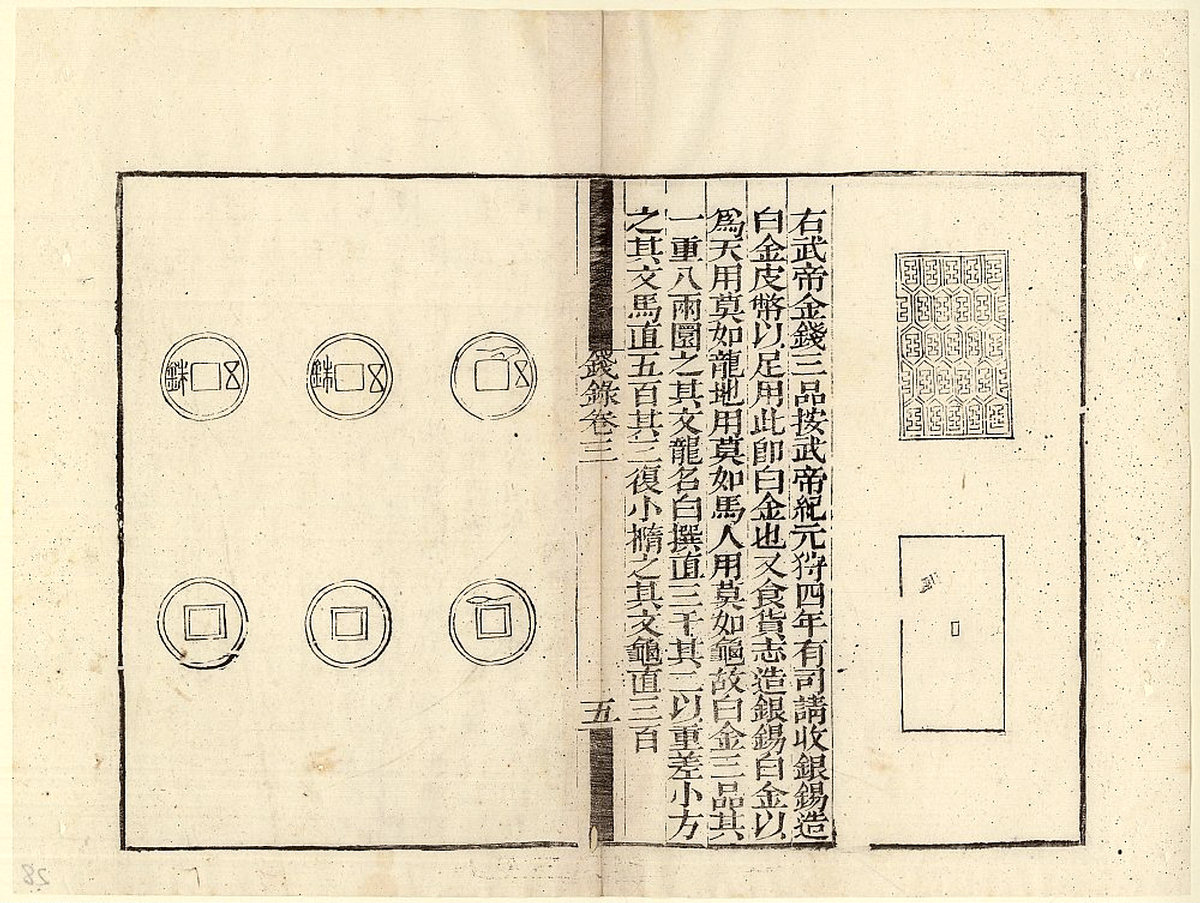 右武帝金錢三品按武帝紀元狩四年有司請收銀錫造
白金皮幣以足用此卽白金也又食貨志造銀錫白金以
爲天用莫如龍地用莫如馬人用莫如龜故白金三品其
一重八兩圜之其文龍名白撰直三千其二以重差小方
之其文馬直五百其三復小橢之其文龜直三百
錢錄卷三
五
五
五銖
五銖
28